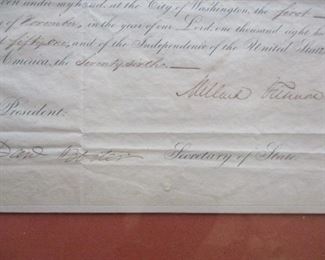 under my hand, at the City of Washington, the first
of November, in the year of our Lord, one thousand eight
fifty one, and of the Independence of the United
America, the Seventy sixth
Millard Fillmore
President:
Danl Webster Secretary of State.